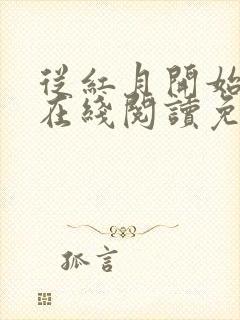 從紅月開始
在綫閱讀免
孤言